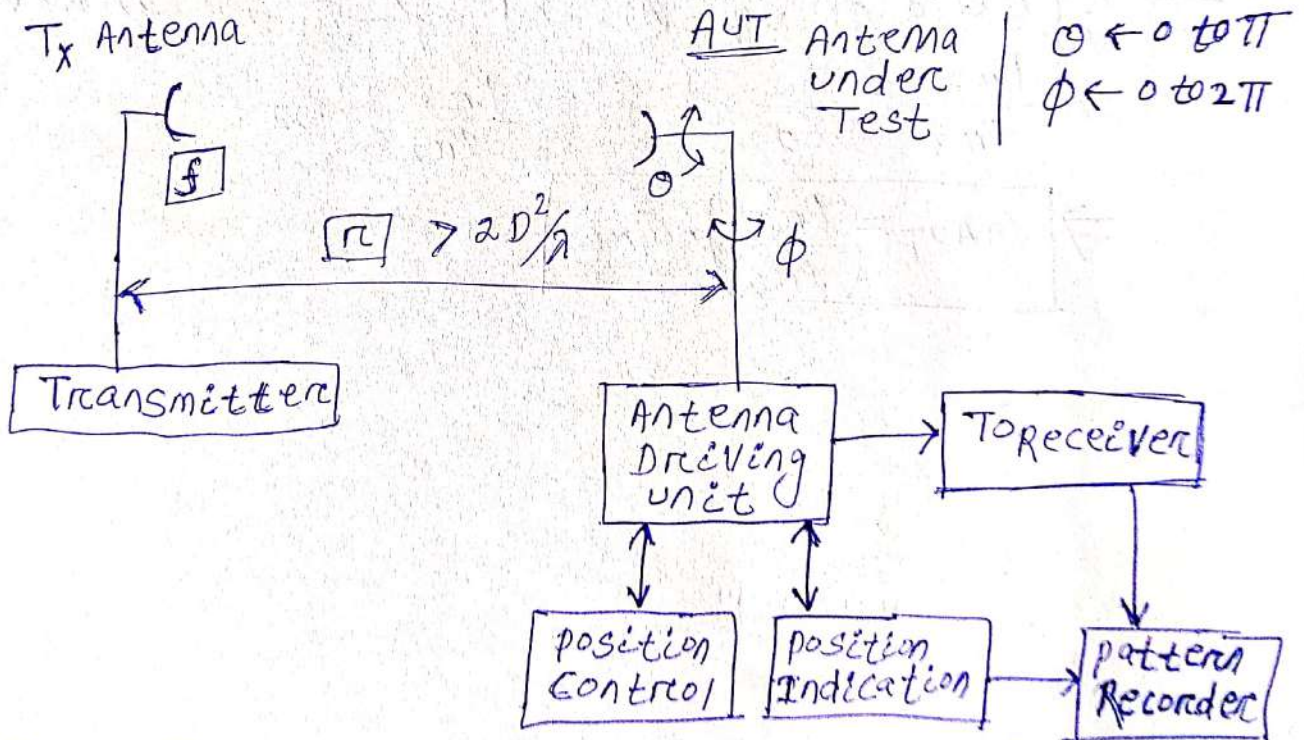 Tx Antenna
AUT Antenna
under
Test
θ ← 0 to π
ϕ ← 0 to 2π
f
r > 2D²/λ
θ
ϕ
Transmitter
Antenna
Driving
unit
To Receiver
position
Control
position
Indication
pattern
Recorder